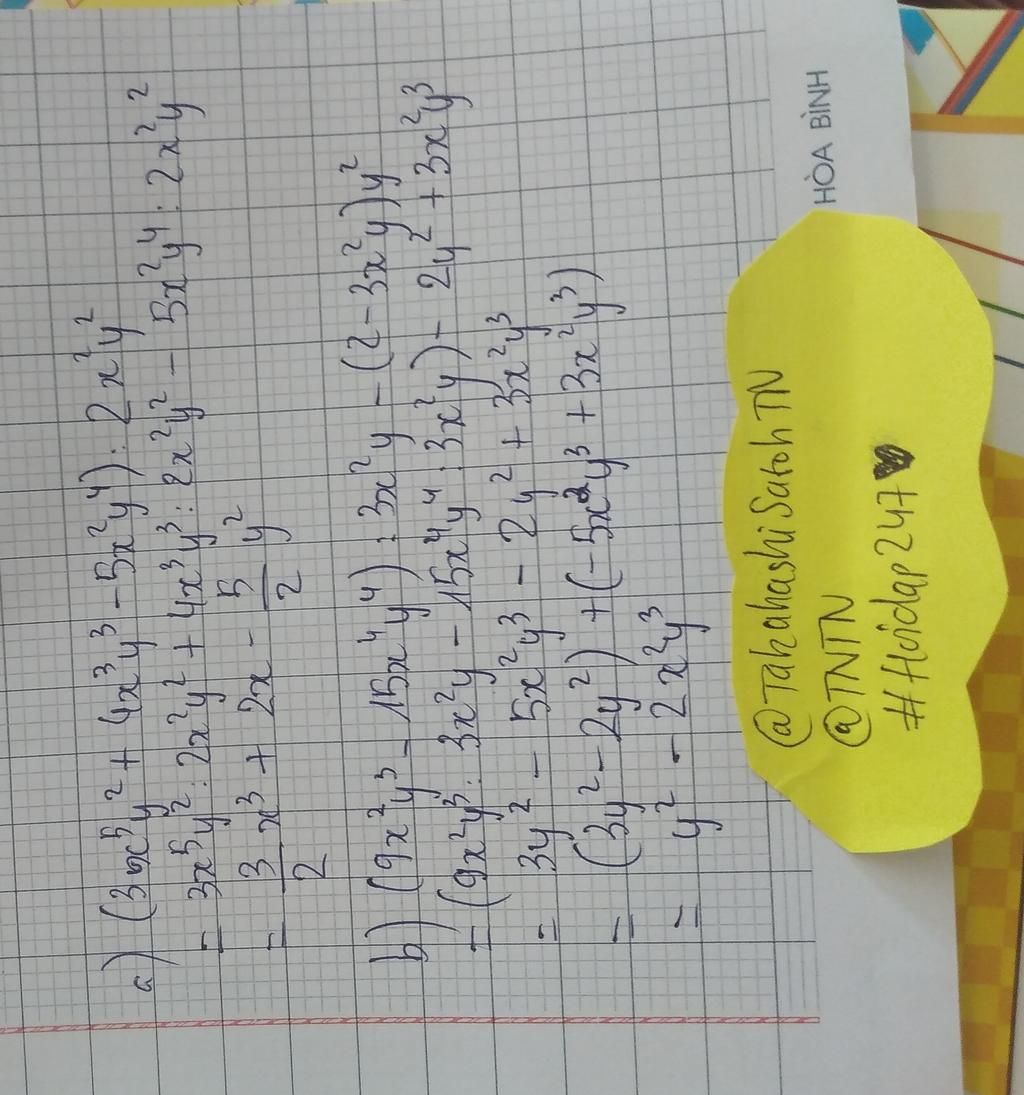 a) (3x⁵y² + 4x³y³ - 5x²y⁴) : 2x²y²
= 3x⁵y² : 2x²y² + 4x³y³ : 2x²y² - 5x²y⁴ : 2x²y²
= 3/2 x³ + 2x - 5/2 y²
b) (9x²y³ - 15x⁴y⁴) : 3x²y - (2 - 3x²y)y²
= (9x²y³ : 3x²y - 15x⁴y⁴ : 3x²y) - 2y² + 3x²y³
= 3y² - 5x²y³ - 2y² + 3x²y³
= (3y² - 2y²) + (-5x²y³ + 3x²y³)
= y² - 2x²y³
@TakahashiSatohTN
@TNTN
#Hoidap247♥
HÒA BÌNH